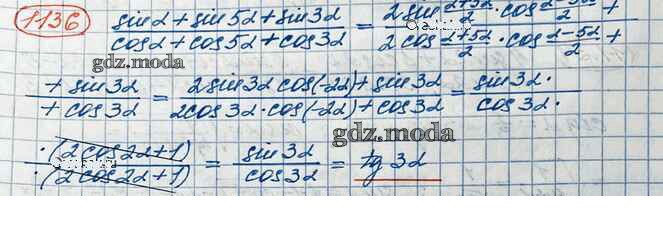 1136 sinα + sin5α + sin3α / cosα + cos5α + cos3α = 2sin (α+5α)/2 · cos (α-5α)/2 + / 2cos (α+5α)/2 · cos (α-5α)/2 +
gdz.moda
+ sin3α / + cos3α = 2sin3α cos(-2α) + sin3α / 2cos3α · cos(-2α) + cos3α = sin3α · / cos3α ·
gdz.moda
· (2cos2α+1) / · (2cos2α+1) = sin3α / cos3α = tg 3α